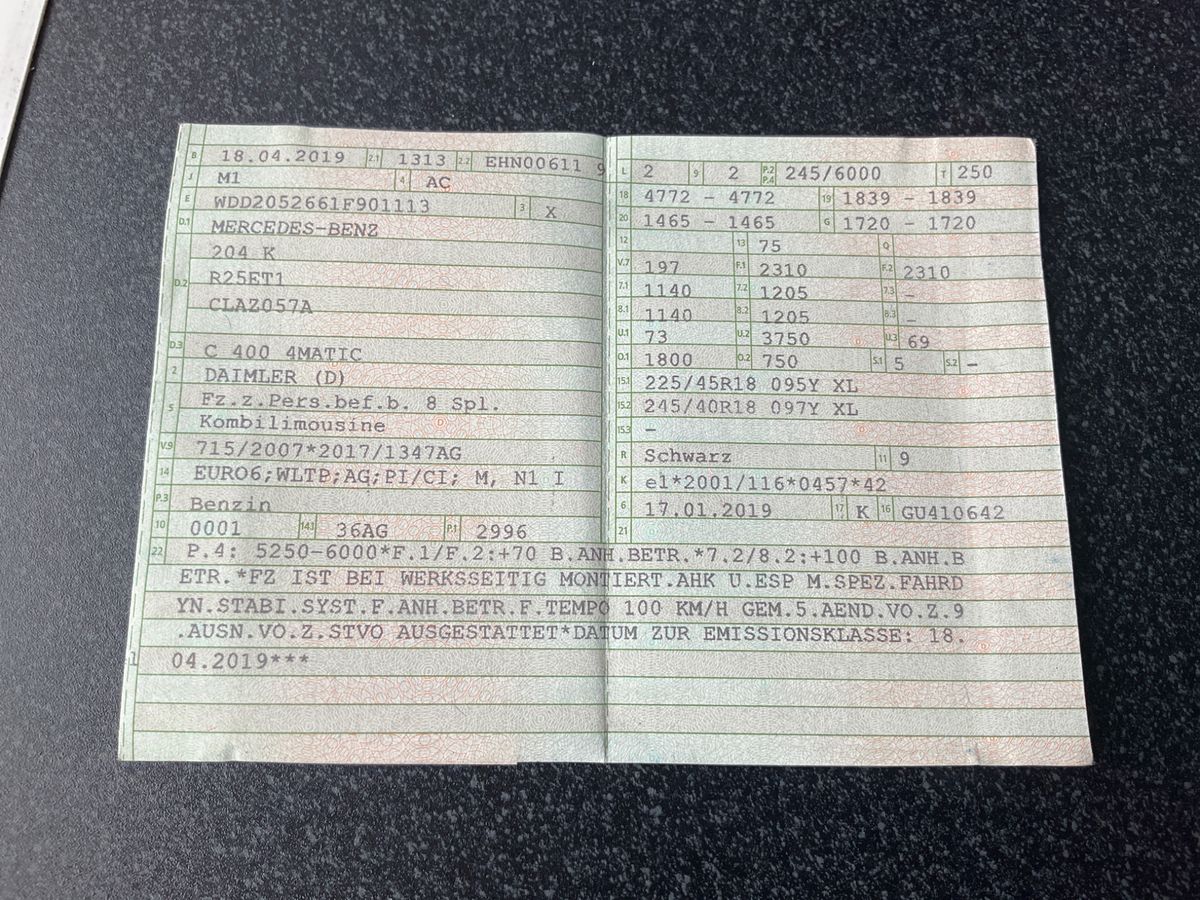 B 18.04.2019 2.1 1313 2.2 EHN00611 9
J M1 4 AC
E WDD2052661F901113 3 X
D.1 MERCEDES-BENZ
204 K
D.2 R25ET1
CLAZ057A
D.3 C 400 4MATIC
2 DAIMLER (D)
5 Fz.z.Pers.bef.b. 8 Spl.
Kombilimousine
V.9 715/2007*2017/1347AG
14 EURO6;WLTP;AG;PI/CI; M, N1 I
P.3 Benzin
10 0001 14.1 36AG P.1 2996
L 2 9 2 P.2 P.4 245/6000 T 250
18 4772 - 4772 19 1839 - 1839
20 1465 - 1465 G 1720 - 1720
12 13 75 Q
V.7 197 F.1 2310 F.2 2310
7.1 1140 7.2 1205 7.3 -
8.1 1140 8.2 1205 8.3 -
U.1 73 U.2 3750 U.3 69
O.1 1800 O.2 750 S.1 5 S.2 -
15.1 225/45R18 095Y XL
15.2 245/40R18 097Y XL
15.3 -
R Schwarz 11 9
K e1*2001/116*0457*42
6 17.01.2019 17 K 16 GU410642
21
22 P.4: 5250-6000*F.1/F.2:+70 B.ANH.BETR.*7.2/8.2:+100 B.ANH.B
ETR.*FZ IST BEI WERKSSEITIG MONTIERT.AHK U.ESP M.SPEZ.FAHRD
YN.STABI.SYST.F.ANH.BETR.F.TEMPO 100 KM/H GEM.5.AEND.VO.Z.9
.AUSN.VO.Z.STVO AUSGESTATTET*DATUM ZUR EMISSIONSKLASSE: 18.
04.2019***